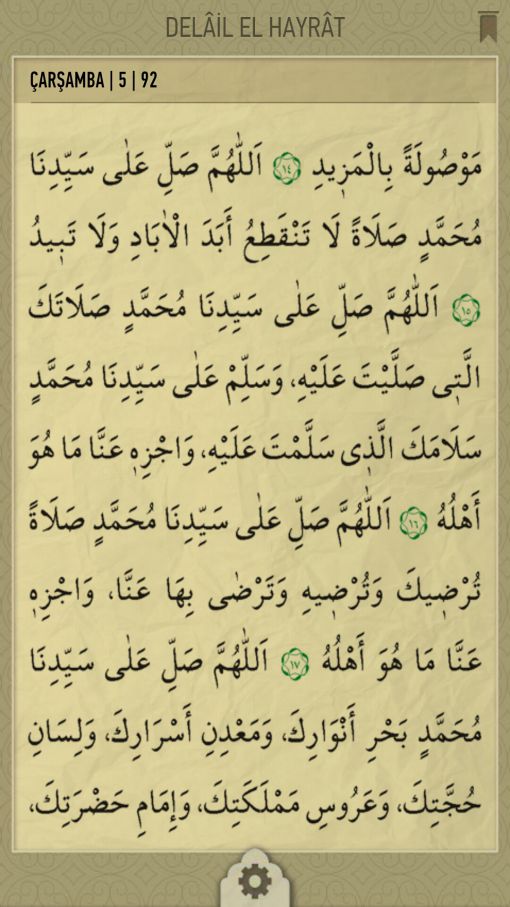 DELÂİL EL HAYRÂT
ÇARŞAMBA | 5 | 92
مَوْصُولَةً بِالْمَزٖيدِ ﴿١٤﴾ اَللّٰهُمَّ صَلِّ عَلٰى سَيِّدِنَا
مُحَمَّدٍ صَلَاةً لَا تَنْقَطِعُ أَبَدَ الْاٰبَادِ وَلَا تَبٖيدُ
﴿١٥﴾ اَللّٰهُمَّ صَلِّ عَلٰى سَيِّدِنَا مُحَمَّدٍ صَلَاتَكَ
الَّتٖى صَلَّيْتَ عَلَيْهِ، وَسَلِّمْ عَلٰى سَيِّدِنَا مُحَمَّدٍ
سَلَامَكَ الَّذٖى سَلَّمْتَ عَلَيْهِ، وَاجْزِهٖ عَنَّا مَا هُوَ
أَهْلُهُ ﴿١٦﴾ اَللّٰهُمَّ صَلِّ عَلٰى سَيِّدِنَا مُحَمَّدٍ صَلَاةً
تُرْضٖيكَ وَتُرْضٖيهِ وَتَرْضٰى بِهَا عَنَّا، وَاجْزِهٖ
عَنَّا مَا هُوَ أَهْلُهُ ﴿١٧﴾ اَللّٰهُمَّ صَلِّ عَلٰى سَيِّدِنَا
مُحَمَّدٍ بَحْرِ أَنْوَارِكَ، وَمَعْدِنِ أَسْرَارِكَ، وَلِسَانِ
حُجَّتِكَ، وَعَرُوسِ مَمْلَكَتِكَ، وَإِمَامِ حَضْرَتِكَ،